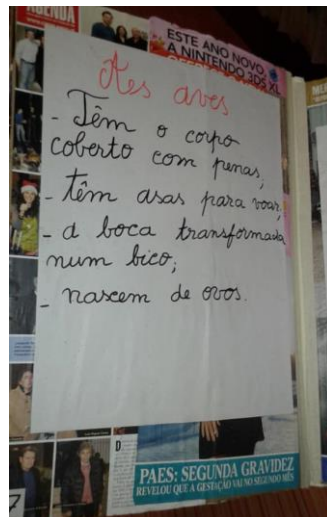 AGENDA
ESTE ANO NOVO,
A NINTENDO 3DS XL
As aves
- Têm o corpo
coberto com penas,
- têm asas para voar,
- a boca transformada
num bico;
- nascem de ovos.
PAES: SEGUNDA GRAVIDEZ
REVELOU QUE A GESTAÇÃO VAI NO SEGUNDO MÊS